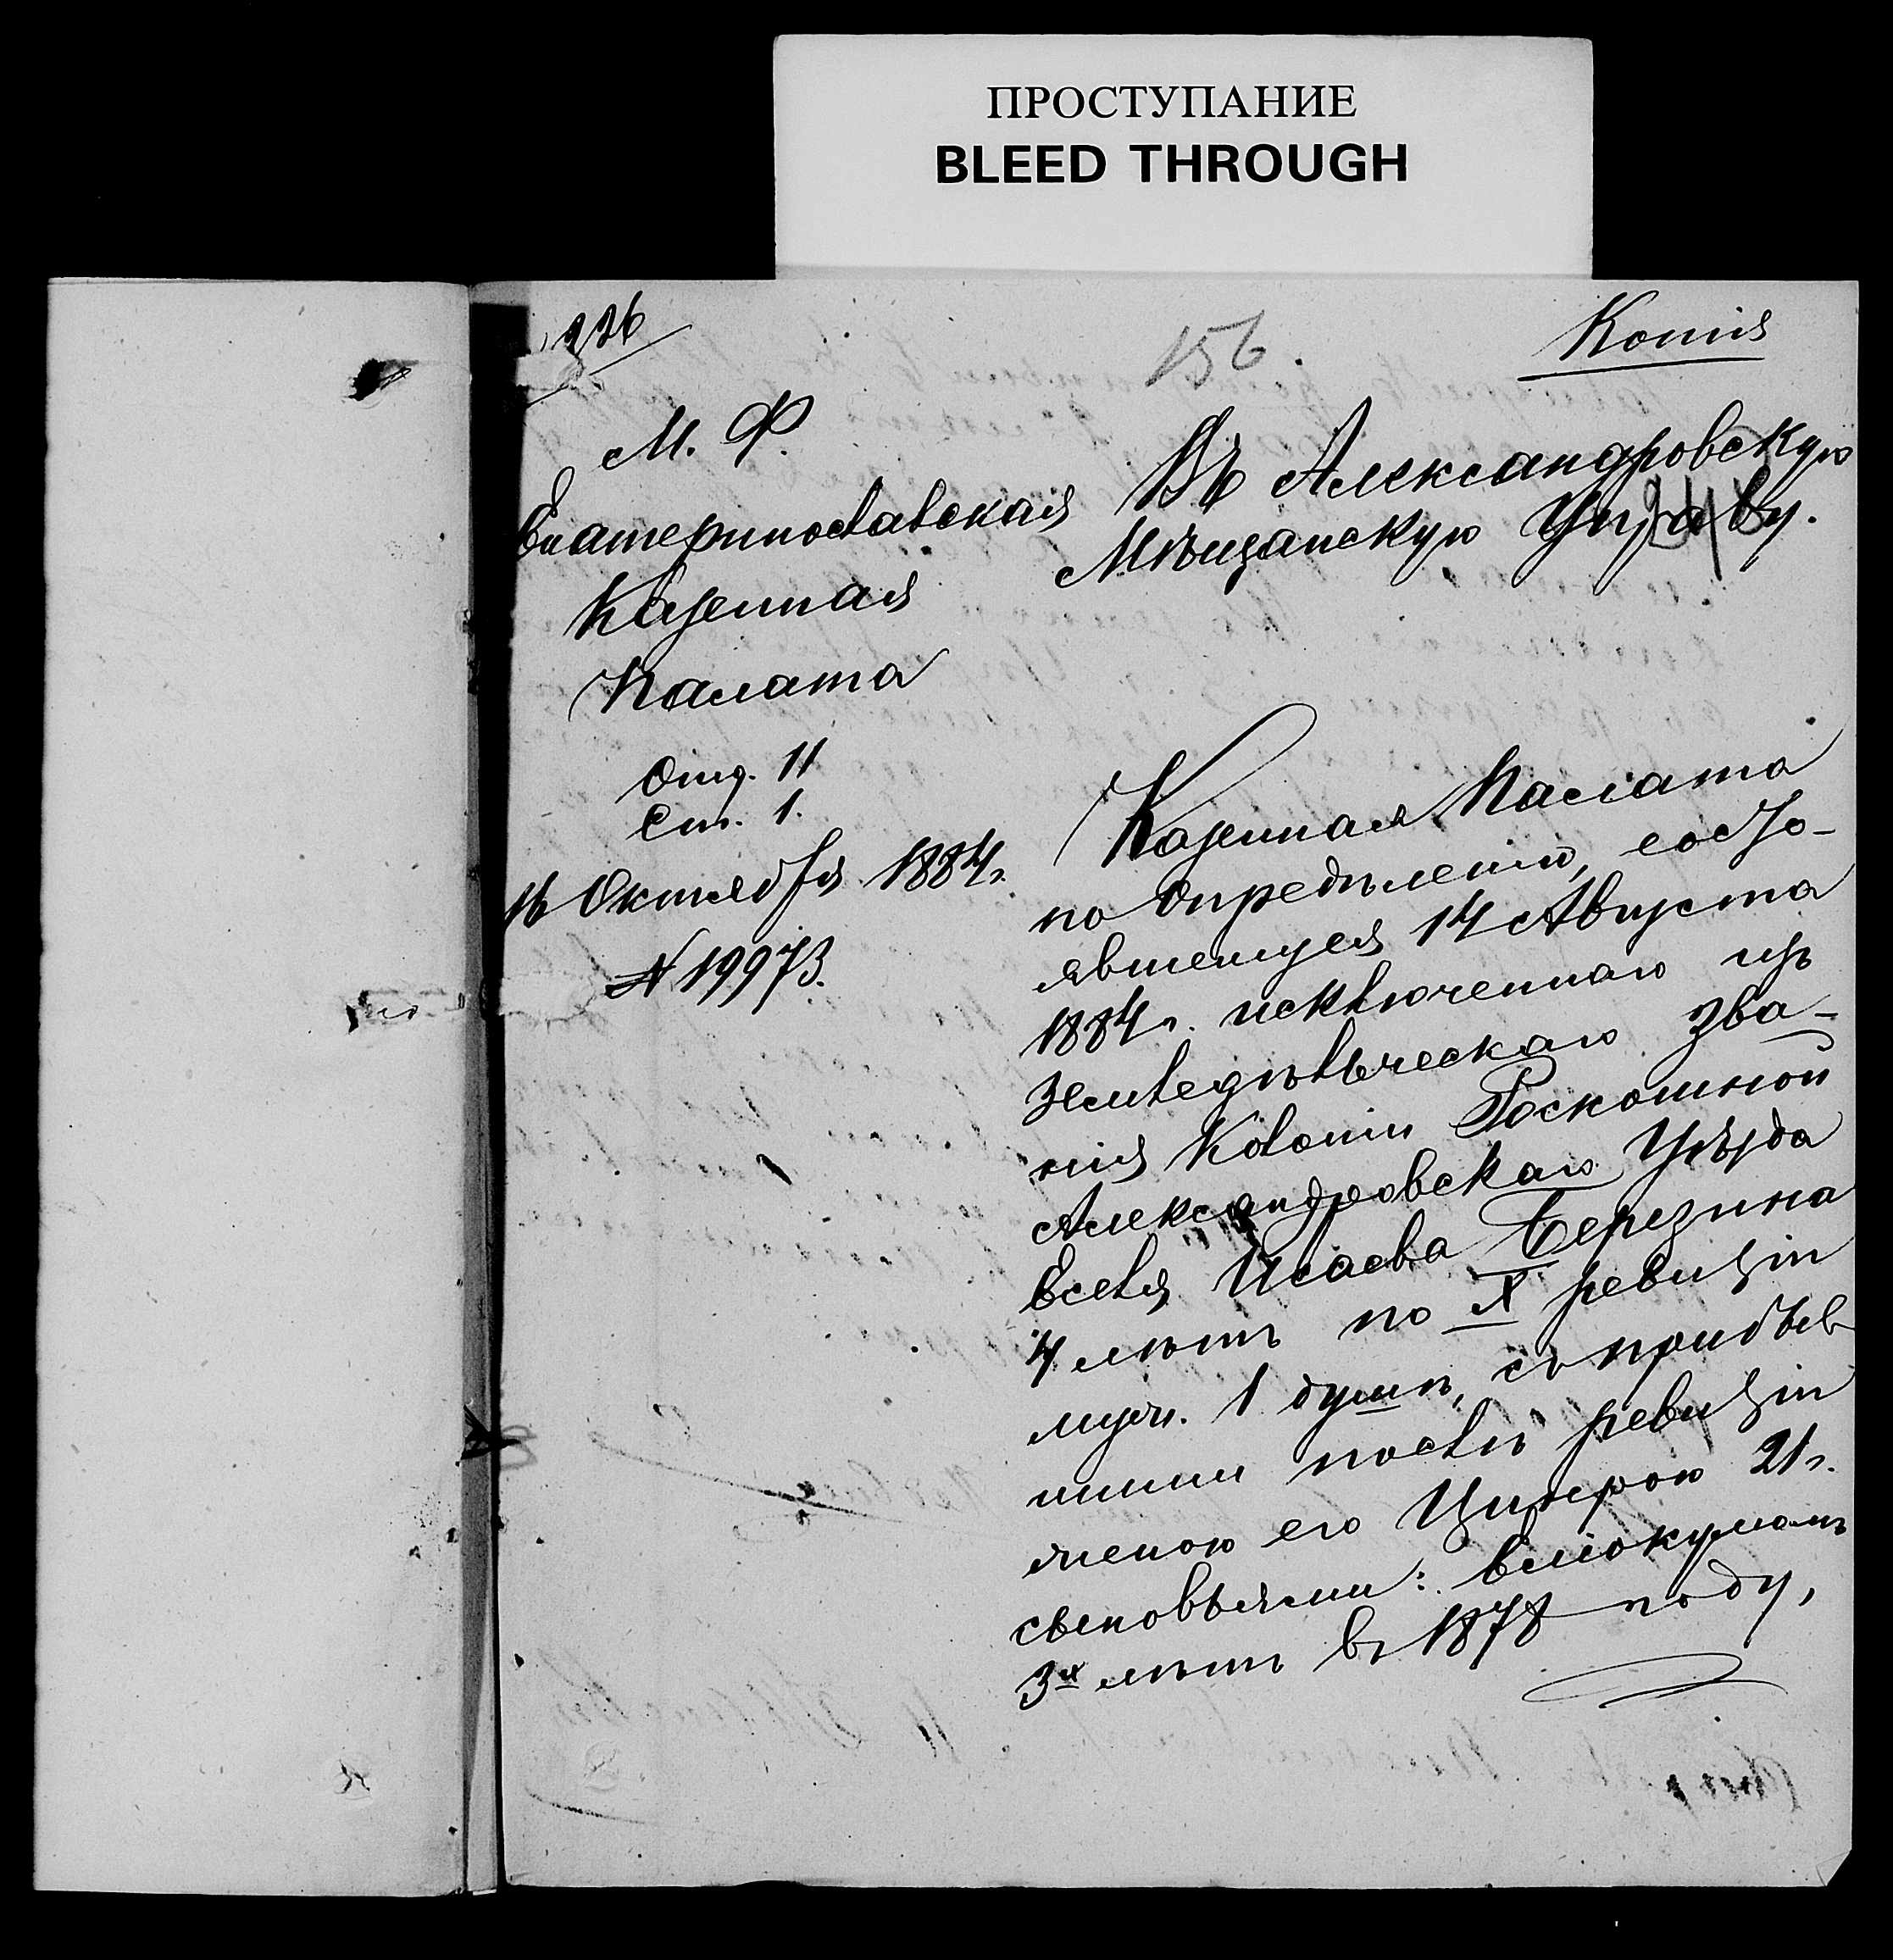 ПРОСТУПАНИЕ
BLEED THROUGH
156.
Копія
М. Ф.
Екатеринославская
Казенная
Палата
Отд. II
Ст. 1.
16 Октября 1884 г.
№ 19973.
Въ Александровскую
Мѣщанскую Управу.
Казенная Палата
по опредѣленію, состо-
явшемуся 14 Августа
1884 г. исключеннаго изъ
земледѣльческаго зва-
нія колоніи Роскошной
Александровскаго Уѣзда
Евселя Исаева Березина
4 лѣтъ по X ревизіи
муж. 1 душѣ, съ прибыв
шими послѣ ревизіи
женою его Ципрою 21 г.
сыновьями:
3х лѣтъ въ 1878 году,